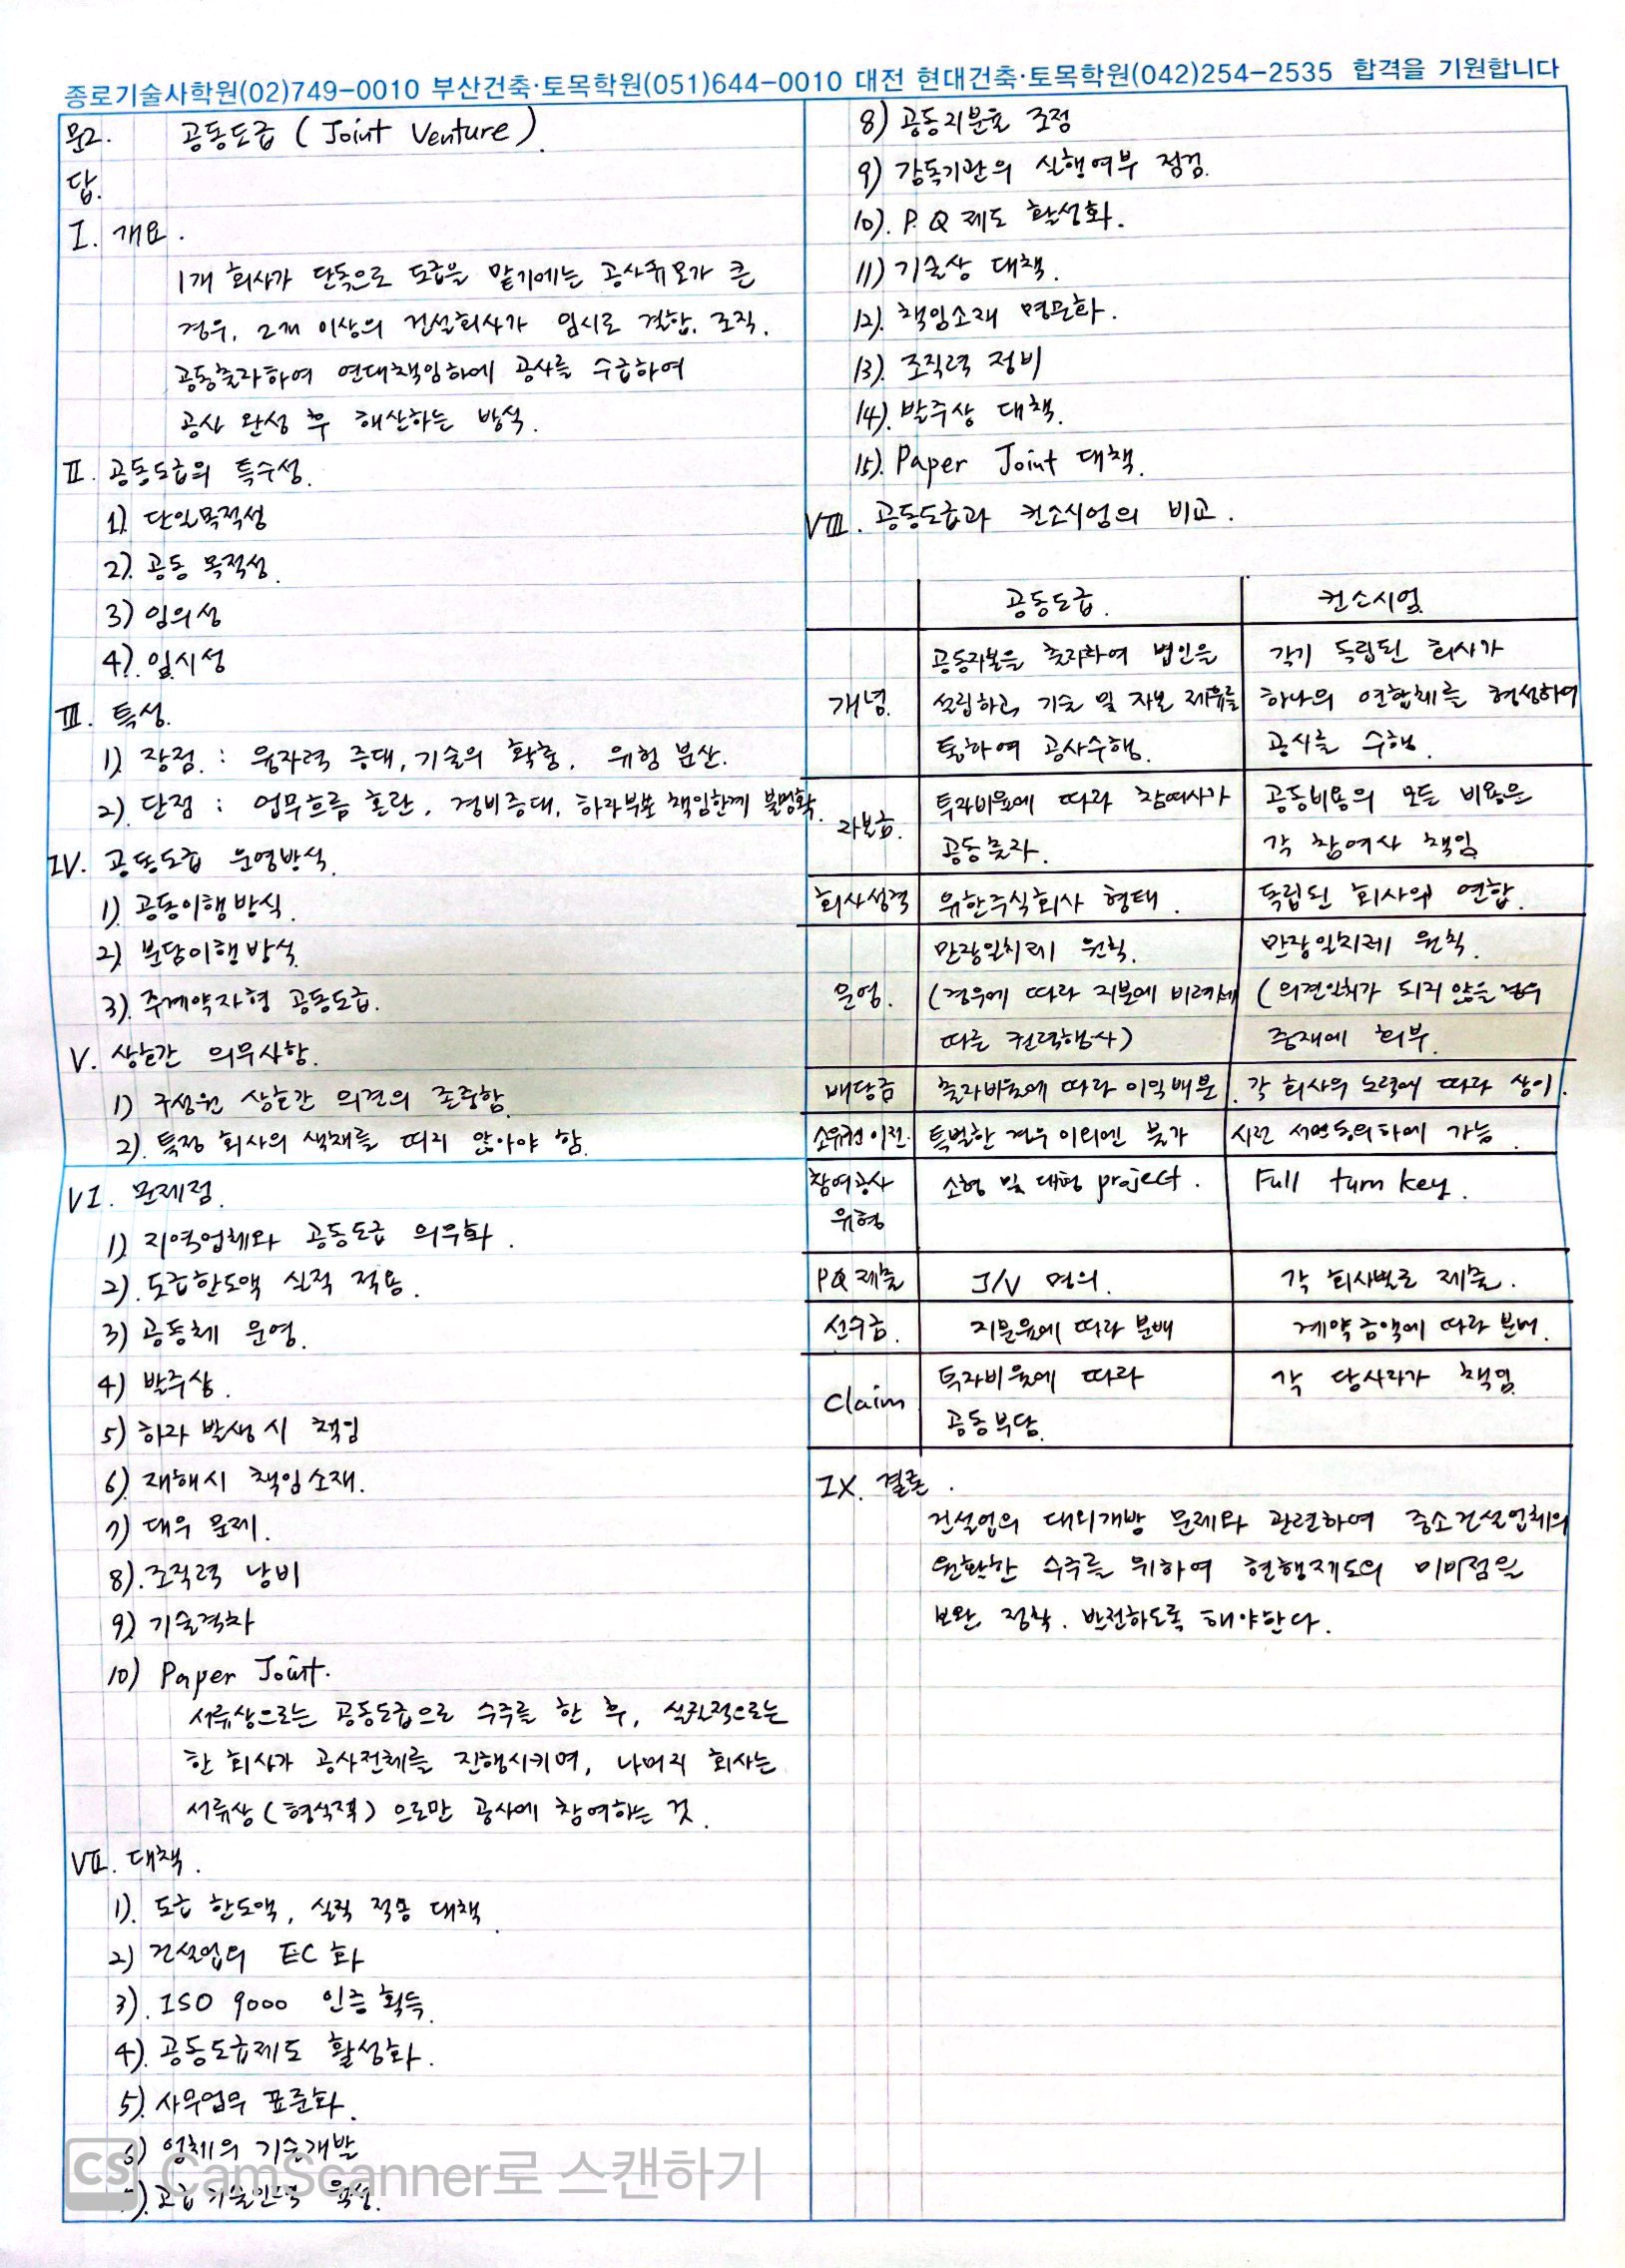 종로기술사학원(02)749-0010 부산건축·토목학원(051)644-0010 대전 현대건축·토목학원(042)254-2535 합격을 기원합니다
문2. 공동도급 ( Joint Venture ).
답.
I. 개요.
1개 회사가 단독으로 도급을 맡기에는 공사규모가 큰
경우, 2개 이상의 건설회사가 임시로 결합, 조직,
공동출자하여 연대책임하에 공사를 수급하여
공사 완성 후 해산하는 방식.
II. 공동도급의 특수성.
1). 단일목적성
2). 공동 목적성.
3) 임의성
4). 일시성
III. 특성.
1). 장점. : 융자력 증대, 기술의 확충, 위험 분산.
2). 단점 : 업무흐름 혼란, 경비증대, 하자부분 책임한계 불명확.
IV. 공동도급 운영방식.
1). 공동이행방식.
2). 분담이행방식.
3). 주계약자형 공동도급.
V. 상호간 의무사항.
1) 구성원 상호간 의견의 존중함.
2). 특정 회사의 색채를 띠지 않아야 함.
VI. 문제점.
1). 지역업체와 공동도급 의무화.
2). 도급한도액 실적 적용.
3) 공동체 운영.
4) 발주상.
5) 하자 발생시 책임
6). 재해시 책임소재.
7) 대우 문제.
8). 조직력 낭비
9) 기술격차
10) Paper Joint.
서류상으로는 공동도급으로 수주를 한 후, 실질적으로는
한 회사가 공사전체를 진행시키며, 나머지 회사는
서류상(형식적)으로만 공사에 참여하는 것.
VII. 대책.
1). 도급 한도액, 실적 적용 대책.
2) 건설업의 EC화
3). ISO 9000 인증 획득.
4). 공동도급제도 활성화.
5). 사무업무 표준화.
6) 업체의 기술개발
7). 고급 기술인력 육성.
CS CamScanner로 스캔하기
8) 공동지분율 조정
9) 감독기관의 실행여부 점검.
10). P.Q 제도 활성화.
11) 기술상 대책.
12). 책임소재 명문화.
13). 조직력 정비
14). 발주상 대책.
15). Paper Joint 대책.
VIII. 공동도급과 컨소시엄의 비교.
공동도급. 컨소시엄.
공동자본을 출자하여 법인을 각기 독립된 회사가
개념. 설립하고, 기술 및 자본 제휴를 하나의 연합체를 형성하여
통하여 공사수행. 공사를 수행.
자본금. 투자비율에 따라 참여사가 공동비용의 모든 비용은
공동출자. 각 참여사 책임.
회사성격 유한주식회사 형태. 독립된 회사의 연합.
만장일치제 원칙. 만장일치제 원칙.
운영. (경우에 따라 지분에 비례해 (의견일치가 되지 않을 경우
따른 권력행사) 중재에 회부.
배당금 출자비율에 따라 이익배분. 각 회사의 노력에 따라 상이.
소유권이전. 특별한 경우 이외엔 불가 사전 서면동의하에 가능.
참여공사 소형 및 대형 project. Full turn key.
유형
PQ 제출 J/V 명의. 각 회사별로 제출.
선수금. 지분율에 따라 분배 계약금액에 따라 분배.
Claim 투자비율에 따라 각 당사자가 책임.
공동부담.
IX. 결론.
건설업의 대외개방 문제와 관련하여 중소건설업체의
원활한 수주를 위하여 현행제도의 미비점을
보완, 정착, 발전하도록 해야한다.